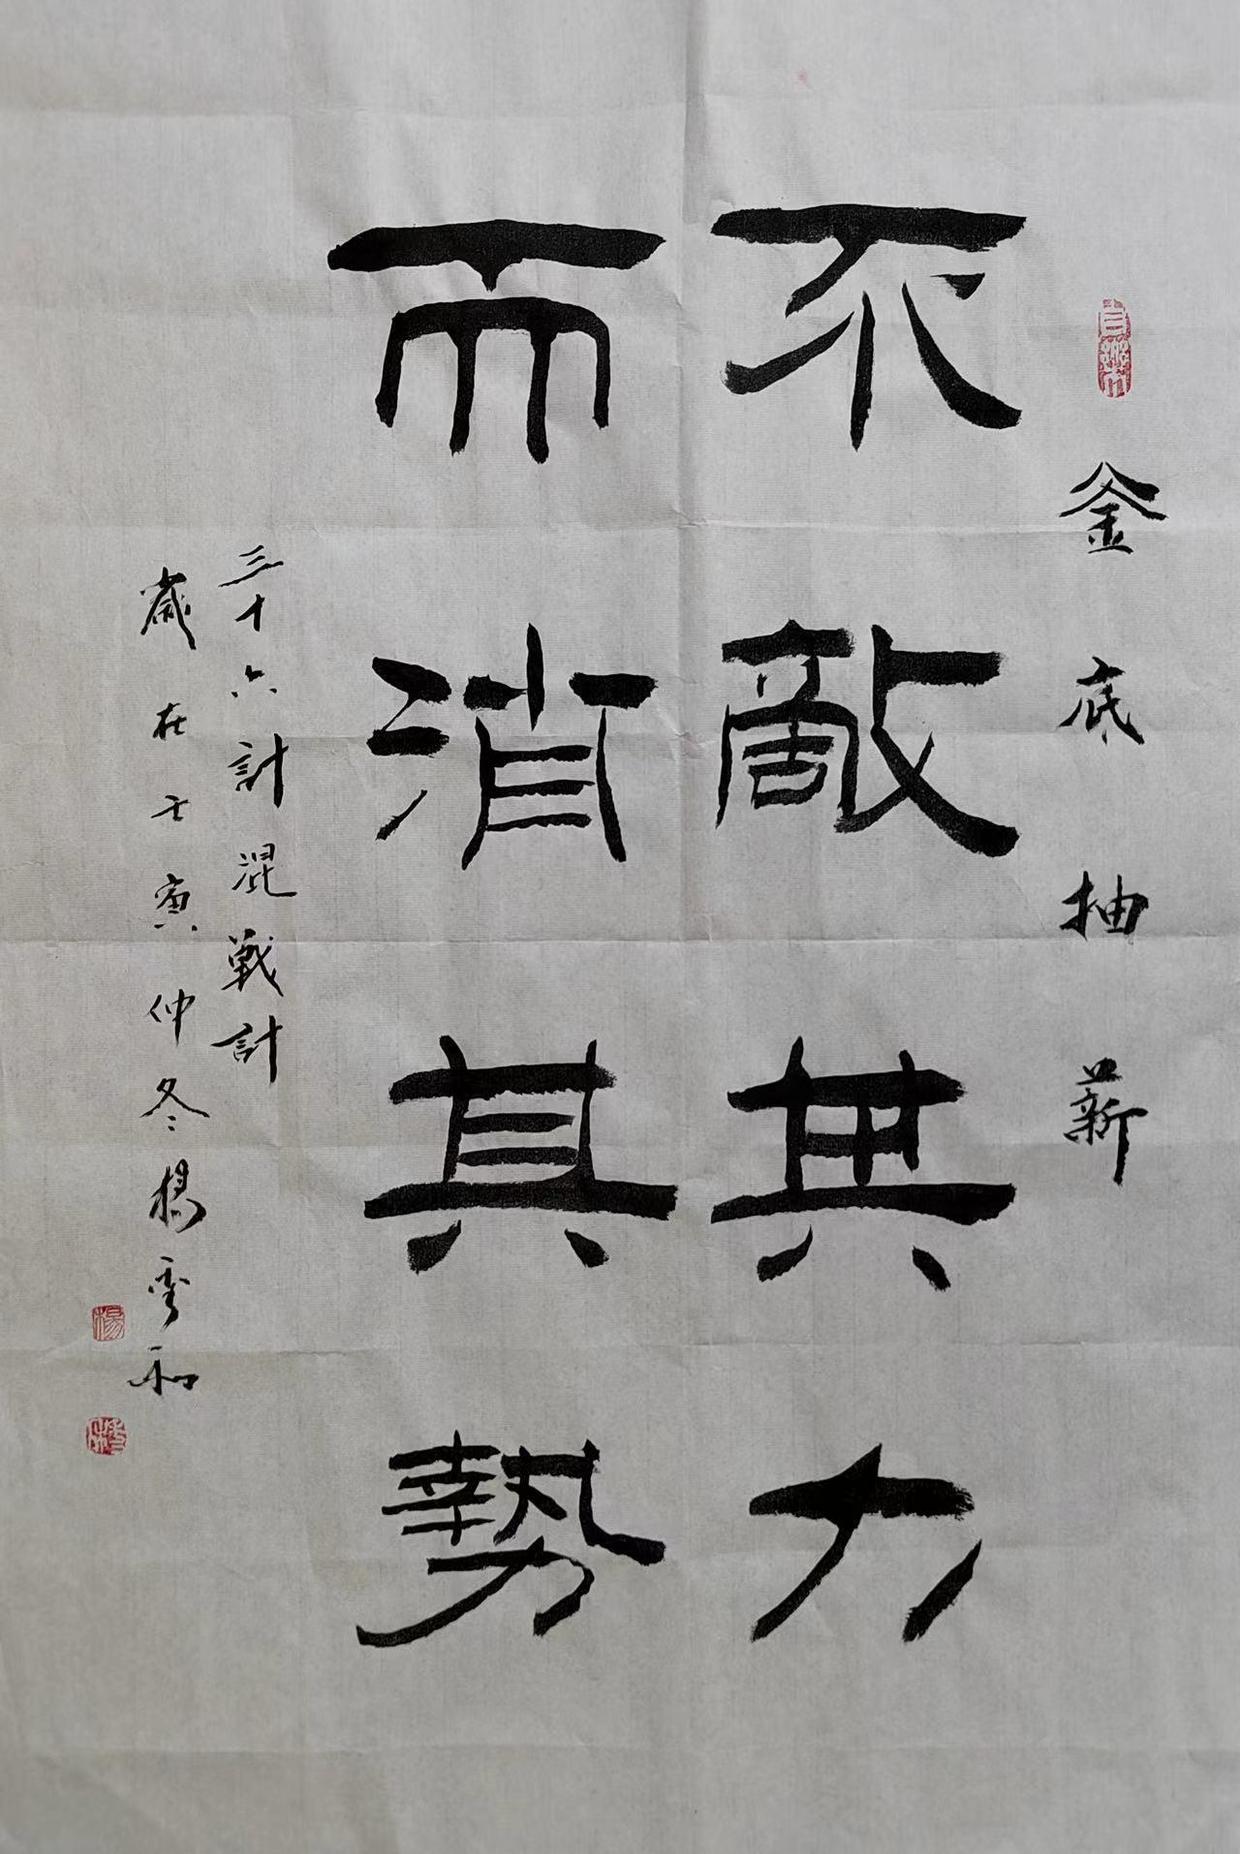 釜底抽薪
不敵其力
而消其勢
三十六計混戰計
歲在壬寅仲冬楊秀和
楊